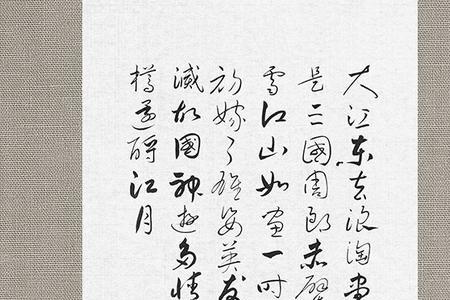 大江东去浪淘尽
是三国周郎赤壁
雪江山如画一时
初嫁了雄姿英发
灭故国神游多情
樽还酹江月